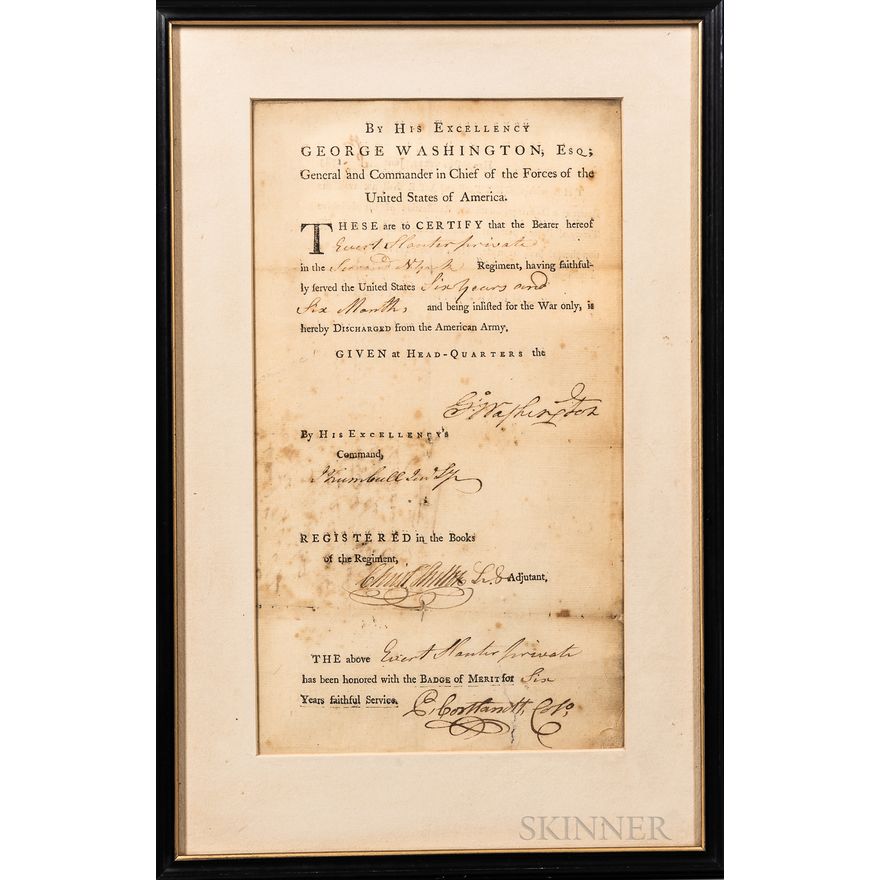 By His Excellency
GEORGE WASHINGTON, Esq;
General and Commander in Chief of the Forces of the
United States of America.
THESE are to CERTIFY that the Bearer hereof
Evert Slouter private
in the Second N York Regiment, having faithful-
ly ſerved the United States Six Years and
Six Months, and being inliſted for the War only, is
hereby Discharged from the American Army.
GIVEN at Head-Quarters the
Go: Washington
By His Excellency's
Command,
J Trumbull Jun
REGISTERED in the Books
of the Regiment,
Adjutant,
THE above Evert Slouter private
has been honored with the Badge of Merit for Six
Years faithful Service.
P. Cortlandt, Colo,
SKINNER